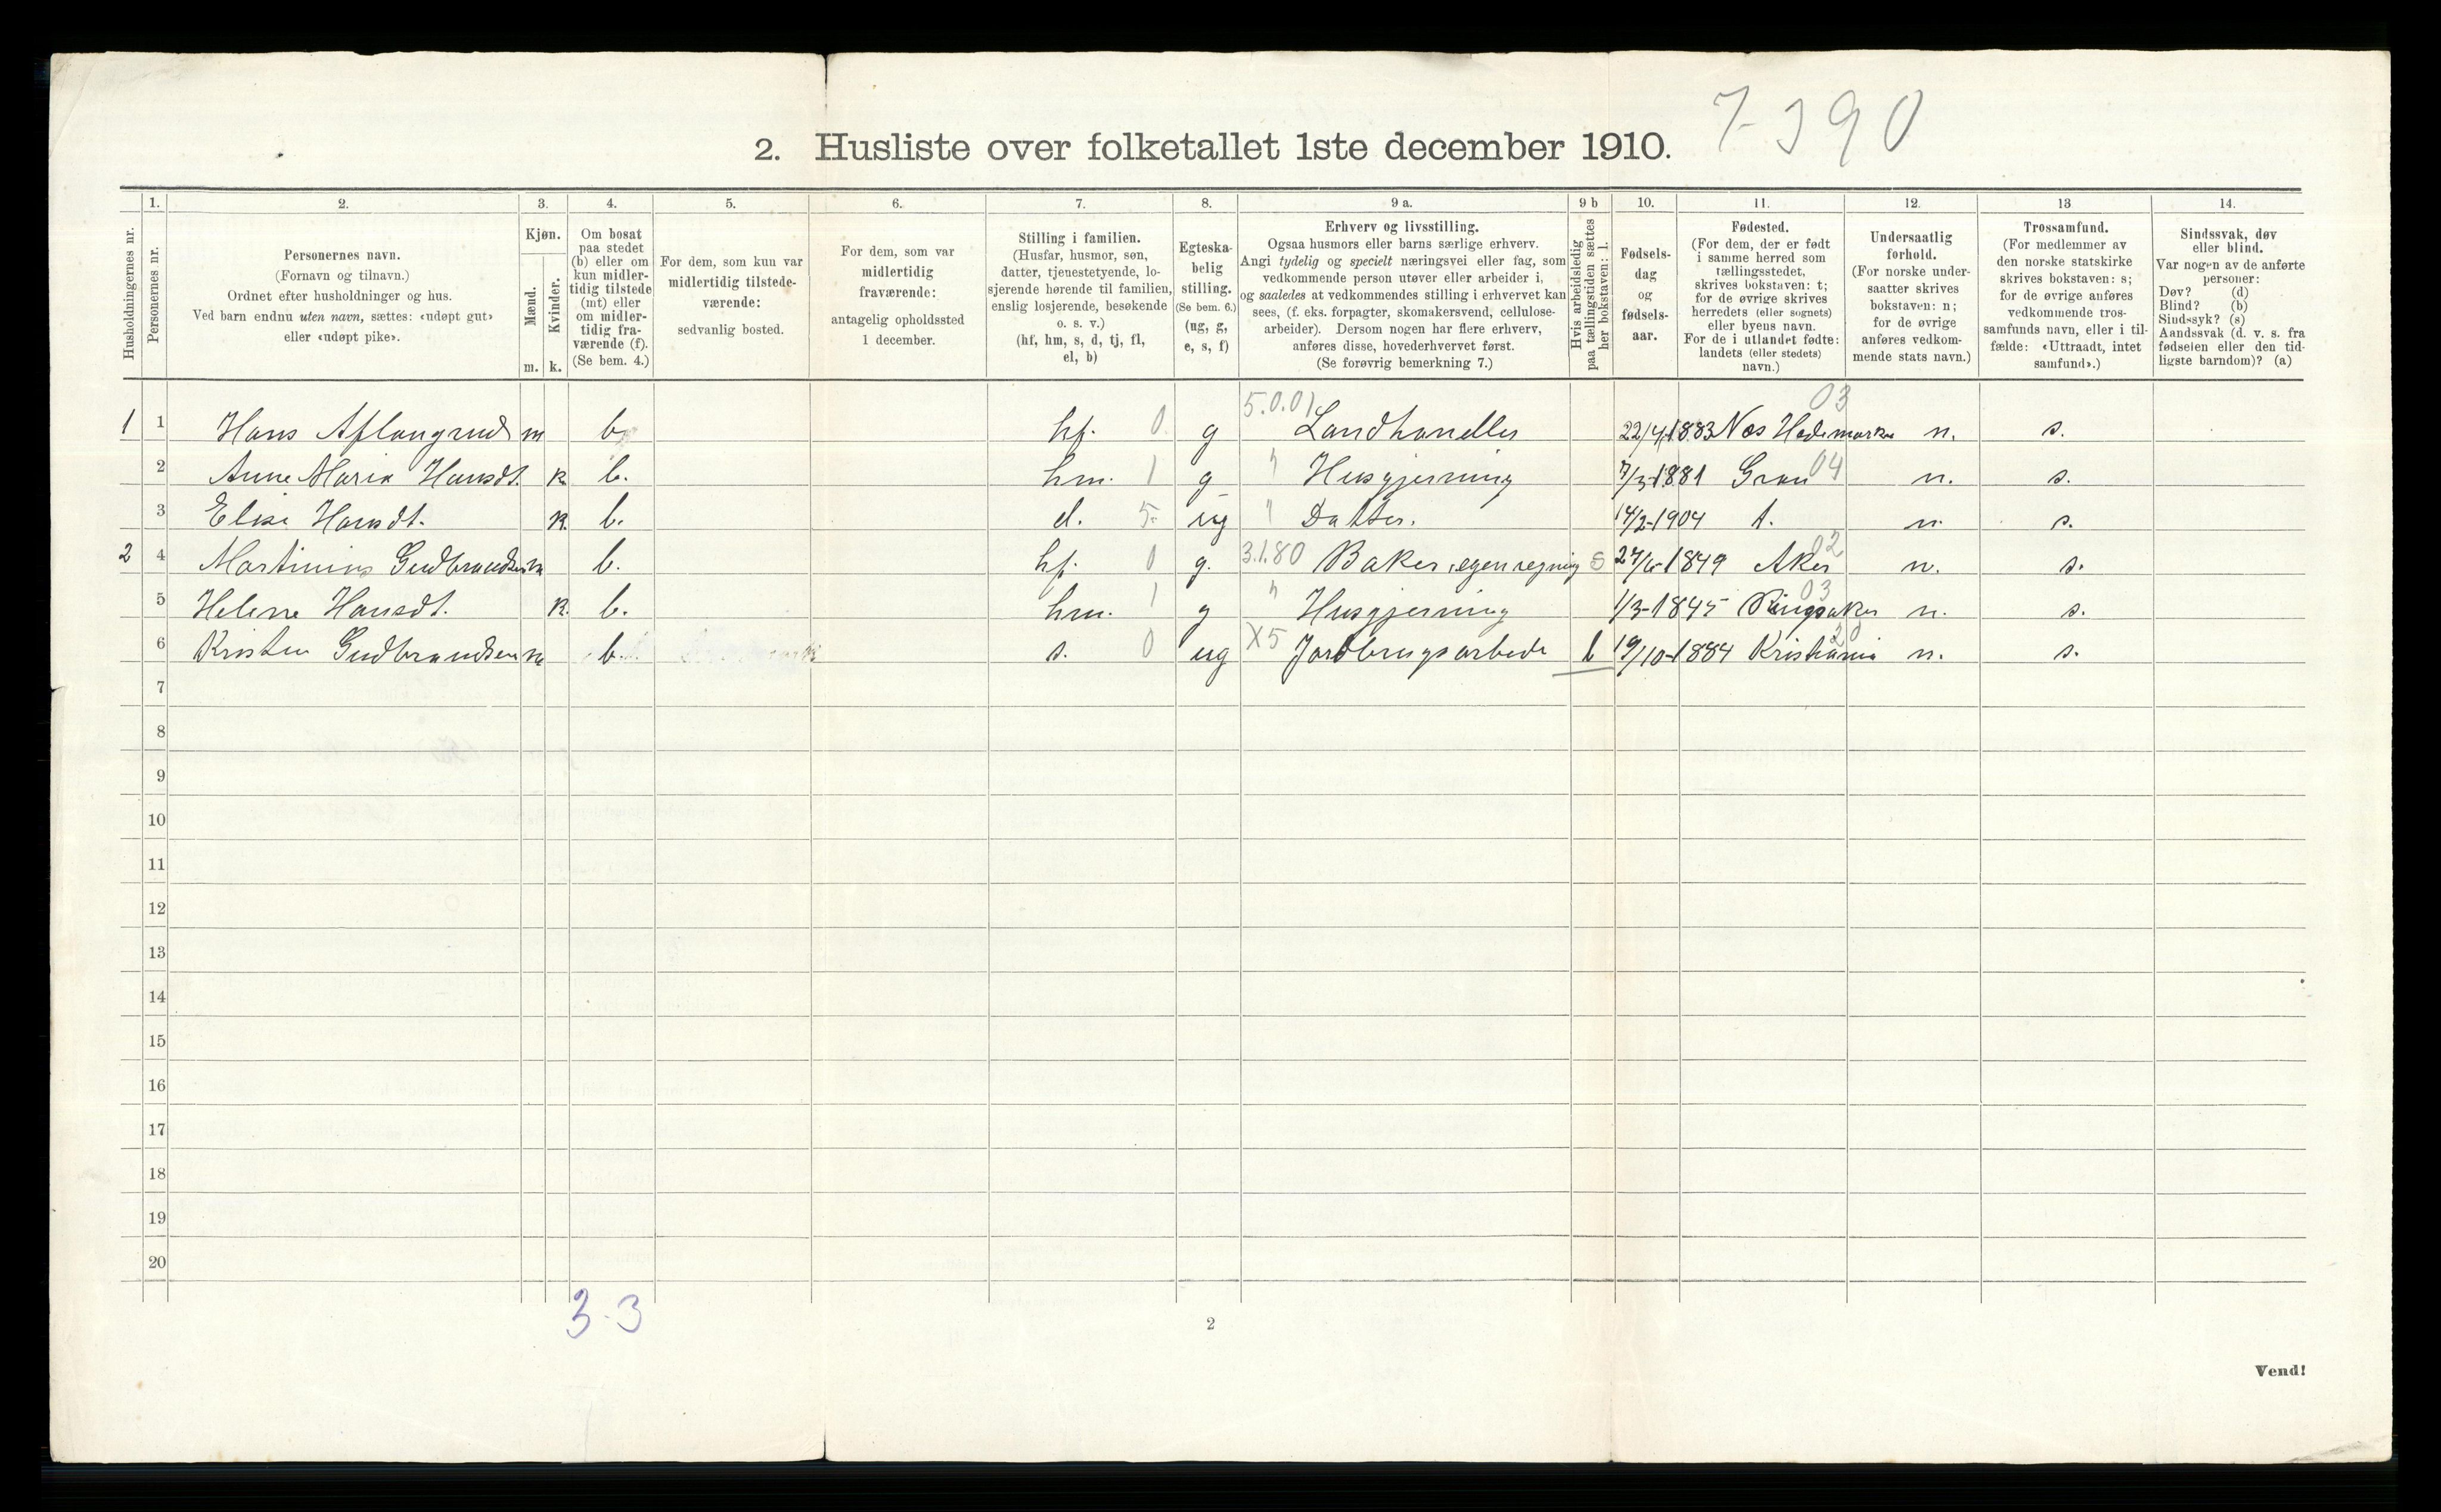 7-390
2. Husliste over folketallet 1ste december 1910.
Husholdningernes nr.
1.
Personernes nr.
2.
Personernes navn.
(Fornavn og tilnavn.)
Ordnet efter husholdninger og hus.
Ved barn endnu uten navn, sættes: «udøpt gut»
eller «udøpt pike».
3.
Kjøn.
Mænd.
Kvinder.
m. k.
4.
Om bosat
paa stedet
(b) eller om
kun midler-
tidig tilstede
(mt) eller
om midler-
tidig fra-
værende (f).
(Se bem. 4.)
5.
For dem, som kun var
midlertidig tilstede-
værende:
sedvanlig bosted.
6.
For dem, som var
midlertidig
fraværende:
antagelig opholdssted
1 december.
7.
Stilling i familien.
(Husfar, husmor, søn,
datter, tjenestetyende, lo-
sjerende hørende til familien,
enslig losjerende, besøkende
o. s. v.)
(hf, hm, s, d, tj, fl,
el, b)
8.
Egteska-
belig
stilling.
(Se bem. 6.)
(ug, g,
e, s, f)
9 a.
Erhverv og livsstilling.
Ogsaa husmors eller barns særlige erhverv.
Angi tydelig og specielt næringsvei eller fag, som
vedkommende person utøver eller arbeider i,
og saaledes at vedkommendes stilling i erhvervet kan
sees, (f. eks. forpagter, skomakersvend, cellulose-
arbeider). Dersom nogen har flere erhverv,
anføres disse, hovederhvervet først.
(Se forøvrig bemerkning 7.)
9 b
Hvis arbeidsledig
paa tællingstiden sættes
her bokstaven: l.
10.
Fødsels-
dag
og
fødsels-
aar.
11.
Fødested.
(For dem, der er født
i samme herred som
tællingsstedet,
skrives bokstaven: t;
for de øvrige skrives
herredets (eller sognets)
eller byens navn.
For de i utlandet fødte:
landets (eller stedets)
navn.)
12.
Undersaatlig
forhold.
(For norske under-
saatter skrives
bokstaven: n;
for de øvrige
anføres vedkom-
mende stats navn.)
13
Trossamfund.
(For medlemmer av
den norske statskirke
skrives bokstaven: s;
for de øvrige anføres
vedkommende tros-
samfunds navn, eller i til-
fælde: «Uttraadt, intet
samfund».)
14.
Sindssvak, døv
eller blind.
Var nogen av de anførte
personer:
Døv? (d)
Blind? (b)
Sindssyk? (s)
Aandssvak (d. v. s. fra
fødselen eller den tid-
ligste barndom)? (a)
1 1 Hans Aflangrud m b. hf. 0 g 5.0.01 Landhandler 22/4-1883 Nes Hedemarken 03 n. s.
2 Anne Maria Hansdt. k b. hm. 1 g " Husgjerning 7/3-1881 Gran 04 n. s.
3 Elise Hansdt. k. b. d. 5. ug " Datter. 14/2-1904 t. n. s.
2 4 Martinius Gudbrandsen m b. hf. 0 g. 3.1.80 Baker, egen regning s 27/6-1849 Aker 02 n. s.
5 Helene Hansdt. k. b. hm. 1 g " Husgjerning 1/3-1845 Ringsaker 03 n. s.
6 Kristen Gudbrandsen m b. s. 0 ug X5 Jordbrugsarbeide l 19/10-1884 Kristiania 20 n. s.
7
8
9
10
11
12
13
14
15
16
17
18
19
20
3-3
2
Vend!